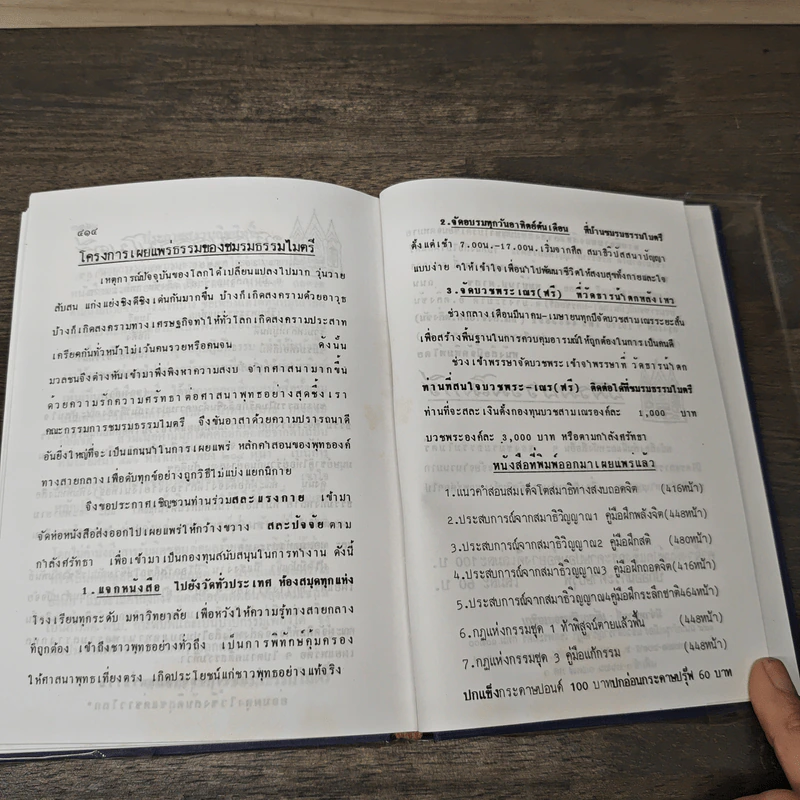 ๔๑๔
โครงการเผยแพร่ธรรมของชมรมธรรมไมตรี
เหตุการณ์ปัจจุบันของโลกได้เปลี่ยนแปลงไปมาก วุ่นวาย
สับสน แก่งแย่งชิงดีชิงเด่นกันมากขึ้น บ้างก็เกิดสงครามด้วยอาวุธ
บ้างก็เกิดสงครามทางเศรษฐกิจทำให้ทั่วโลกเกิดสงครามประสาท
เครียดกันทั่วหน้าไม่เว้นคนรวยหรือคนจน ดังนั้น
มวลชนจึงต่างหันเข้ามาพึ่งพิงหาความสงบ จากศาสนามากขึ้น
ด้วยความรักความศรัทธาต่อศาสนาพุทธอย่างสุดซึ้ง เรา
คณะกรรมการชมรมธรรมไมตรี จึงขันอาสาด้วยความปรารถนาดี
อันยิ่งใหญ่ที่จะเป็นแกนนำในการเผยแพร่ หลักคำสอนของพุทธองค์
ทางสายกลางเพื่อดับทุกข์อย่างถูกวิธีไม่แบ่งแยกนิกาย
จึงขอประกาศเชิญชวนท่านร่วมสละแรงกาย เข้ามา
จัดห่อหนังสือส่งออกไปเผยแพร่ให้กว้างขวาง สละปัจจัย ตาม
กำลังศรัทธา เพื่อเข้ามาเป็นกองทุนสนับสนุนในการทำงาน ดังนี้
1. แจกหนังสือ ไปยังวัดทั่วประเทศ ห้องสมุดทุกแห่ง
โรงเรียนทุกระดับ มหาวิทยาลัย เพื่อหวังให้ความรู้ทางสายกลาง
ที่ถูกต้อง เข้าถึงชาวพุทธอย่างทั่วถึง เป็นการพิทักษ์คุ้มครอง
ให้ศาสนาพุทธเที่ยงตรง เกิดประโยชน์แก่ชาวพุทธอย่างแท้จริง
2. จัดอบรมทุกวันอาทิตย์ต้นเดือน ที่บ้านชมรมธรรมไมตรี
ตั้งแต่เช้า 7.00น.-17.00น. เริ่มจากศีล สมาธิวิปัสสนาปัญญา
แบบง่าย ๆให้เข้าใจเพื่อนำไปพัฒนาชีวิตให้สงบสุขทั้งกายและใจ
3. จัดบวชพระ-เณร(ฟรี) ที่วัดธารน้ำตกหลังเขา
ช่วงกลางเดือนมีนาคม-เมษายนทุกปีจัดบวชสามเณรระยะสั้น
เพื่อสร้างพื้นฐานในการควบคุมอารมณ์ให้ถูกต้องในการเป็นคนดี
ช่วงเข้าพรรษาจัดบวชพระเข้าจำพรรษาที่ วัดธารน้ำตก
ท่านที่สนใจบวชพระ-เณร(ฟรี) ติดต่อได้ที่ชมรมธรรมไมตรี
ท่านที่จะสละเงินตั้งกองทุนบวชสามเณรองค์ละ 1,000 บาท
บวชพระองค์ละ 3,000 บาท หรือตามกำลังศรัทธา
หนังสือที่พิมพ์ออกมาเผยแพร่แล้ว
1. แนวคำสอนสมเด็จโตสมาธิทางสงบถอดจิต (416หน้า)
2. ประสบการณ์จากสมาธิวิญญาณ1 คู่มือฝึกพลังจิต(448หน้า)
3. ประสบการณ์จากสมาธิวิญญาณ2 คู่มือฝึกสติ (480หน้า)
4. ประสบการณ์จากสมาธิวิญญาณ3 คู่มือฝึกถอดจิต(416หน้า)
5. ประสบการณ์จากสมาธิวิญญาณ4คู่มือฝึกระลึกชาติ464หน้า)
6. กฎแห่งกรรมชุด 1 ท้าพิสูจน์ตายแล้วฟื้น (448หน้า)
7. กฎแห่งกรรมชุด 3 คู่มือแก้กรรม (448หน้า)
ปกแข็งกระดาษปอนด์ 100 บาทปกอ่อนกระดาษปรู๊ฟ 60 บาท